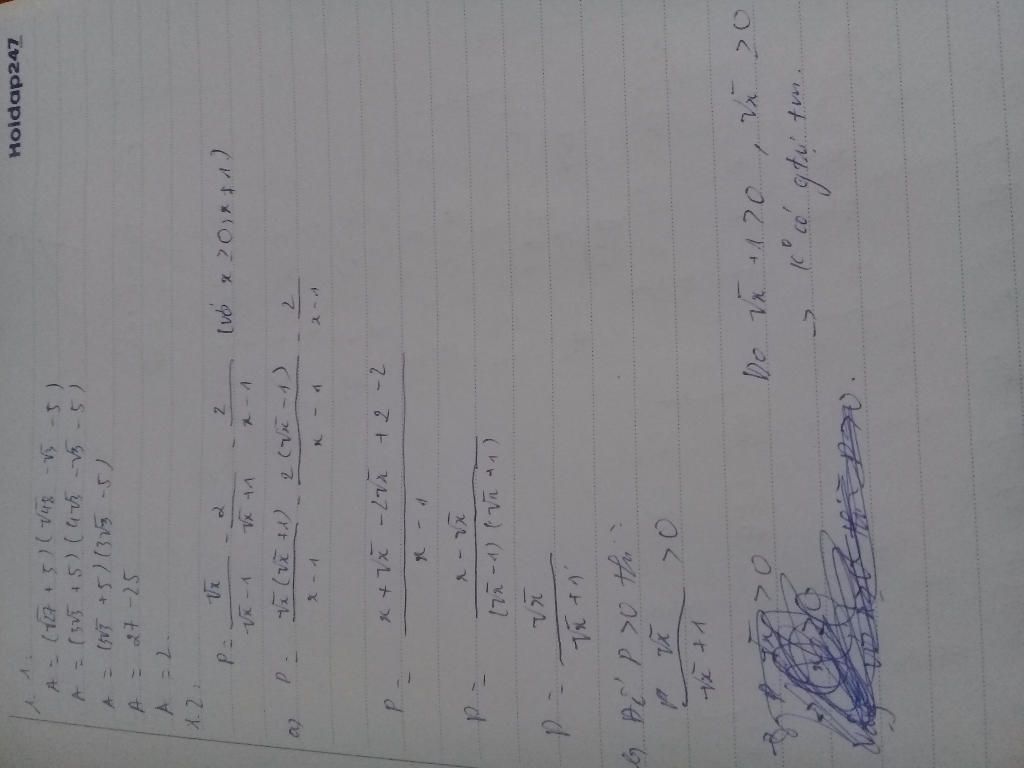 Hoidap247
1. 1.
A = (√27 + 5)(√48 - √3 - 5)
A = (3√3 + 5)(4√3 - √3 - 5)
A = (3√3 + 5)(3√3 - 5)
A = 27 - 25
A = 2
1.2.
P = √x/(√x - 1) - 2/(√x + 1) - 2/(x - 1) (x > 0; x ≠ 1)
a) P = √x(√x + 1)/(x - 1) - 2(√x - 1)/(x - 1) - 2/(x - 1)
P = (x + √x - 2√x + 2 - 2)/(x - 1)
P = (x - √x)/((√x - 1)(√x + 1))
P = √x/(√x + 1)
b) Để P > 0 thì:
√x/(√x + 1) > 0
√x > 0 Do √x + 1 > 0, √x > 0
→ K° có gtrị tm.